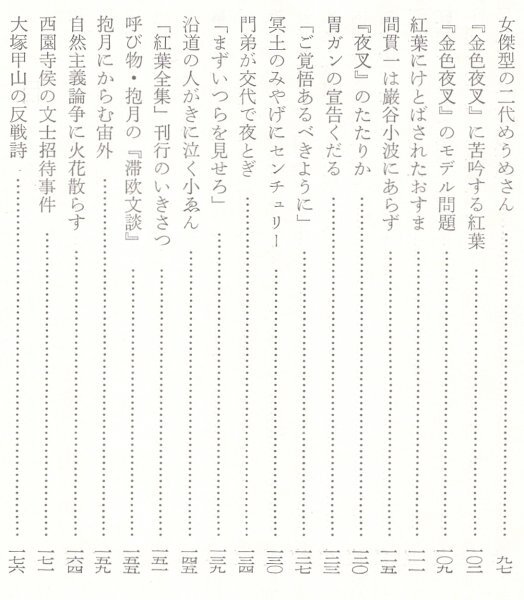 女傑型の二代めうめさん……九七
『金色夜叉』に苦吟する紅葉……一〇二
『金色夜叉』のモデル問題……一〇九
紅葉にけとばされたおすま……一一一
間貫一は巌谷小波にあらず……一一五
『夜叉』のたたりか……一二〇
胃ガンの宣告くだる……一二三
「ご覚悟あるべきように」……一二七
冥土のみやげにセンチュリー……一三〇
門弟が交代で夜とぎ……一三四
「まずいつらを見せろ」……一三九
沿道の人がきに泣く小ゑん……一四五
「紅葉全集」刊行のいきさつ……一五一
呼び物・抱月の『滞欧文談』……一五五
抱月にからむ宙外……一五九
自然主義論争に火花散らす……一六四
西園寺侯の文士招待事件……一七一
大塚甲山の反戦詩……一七六